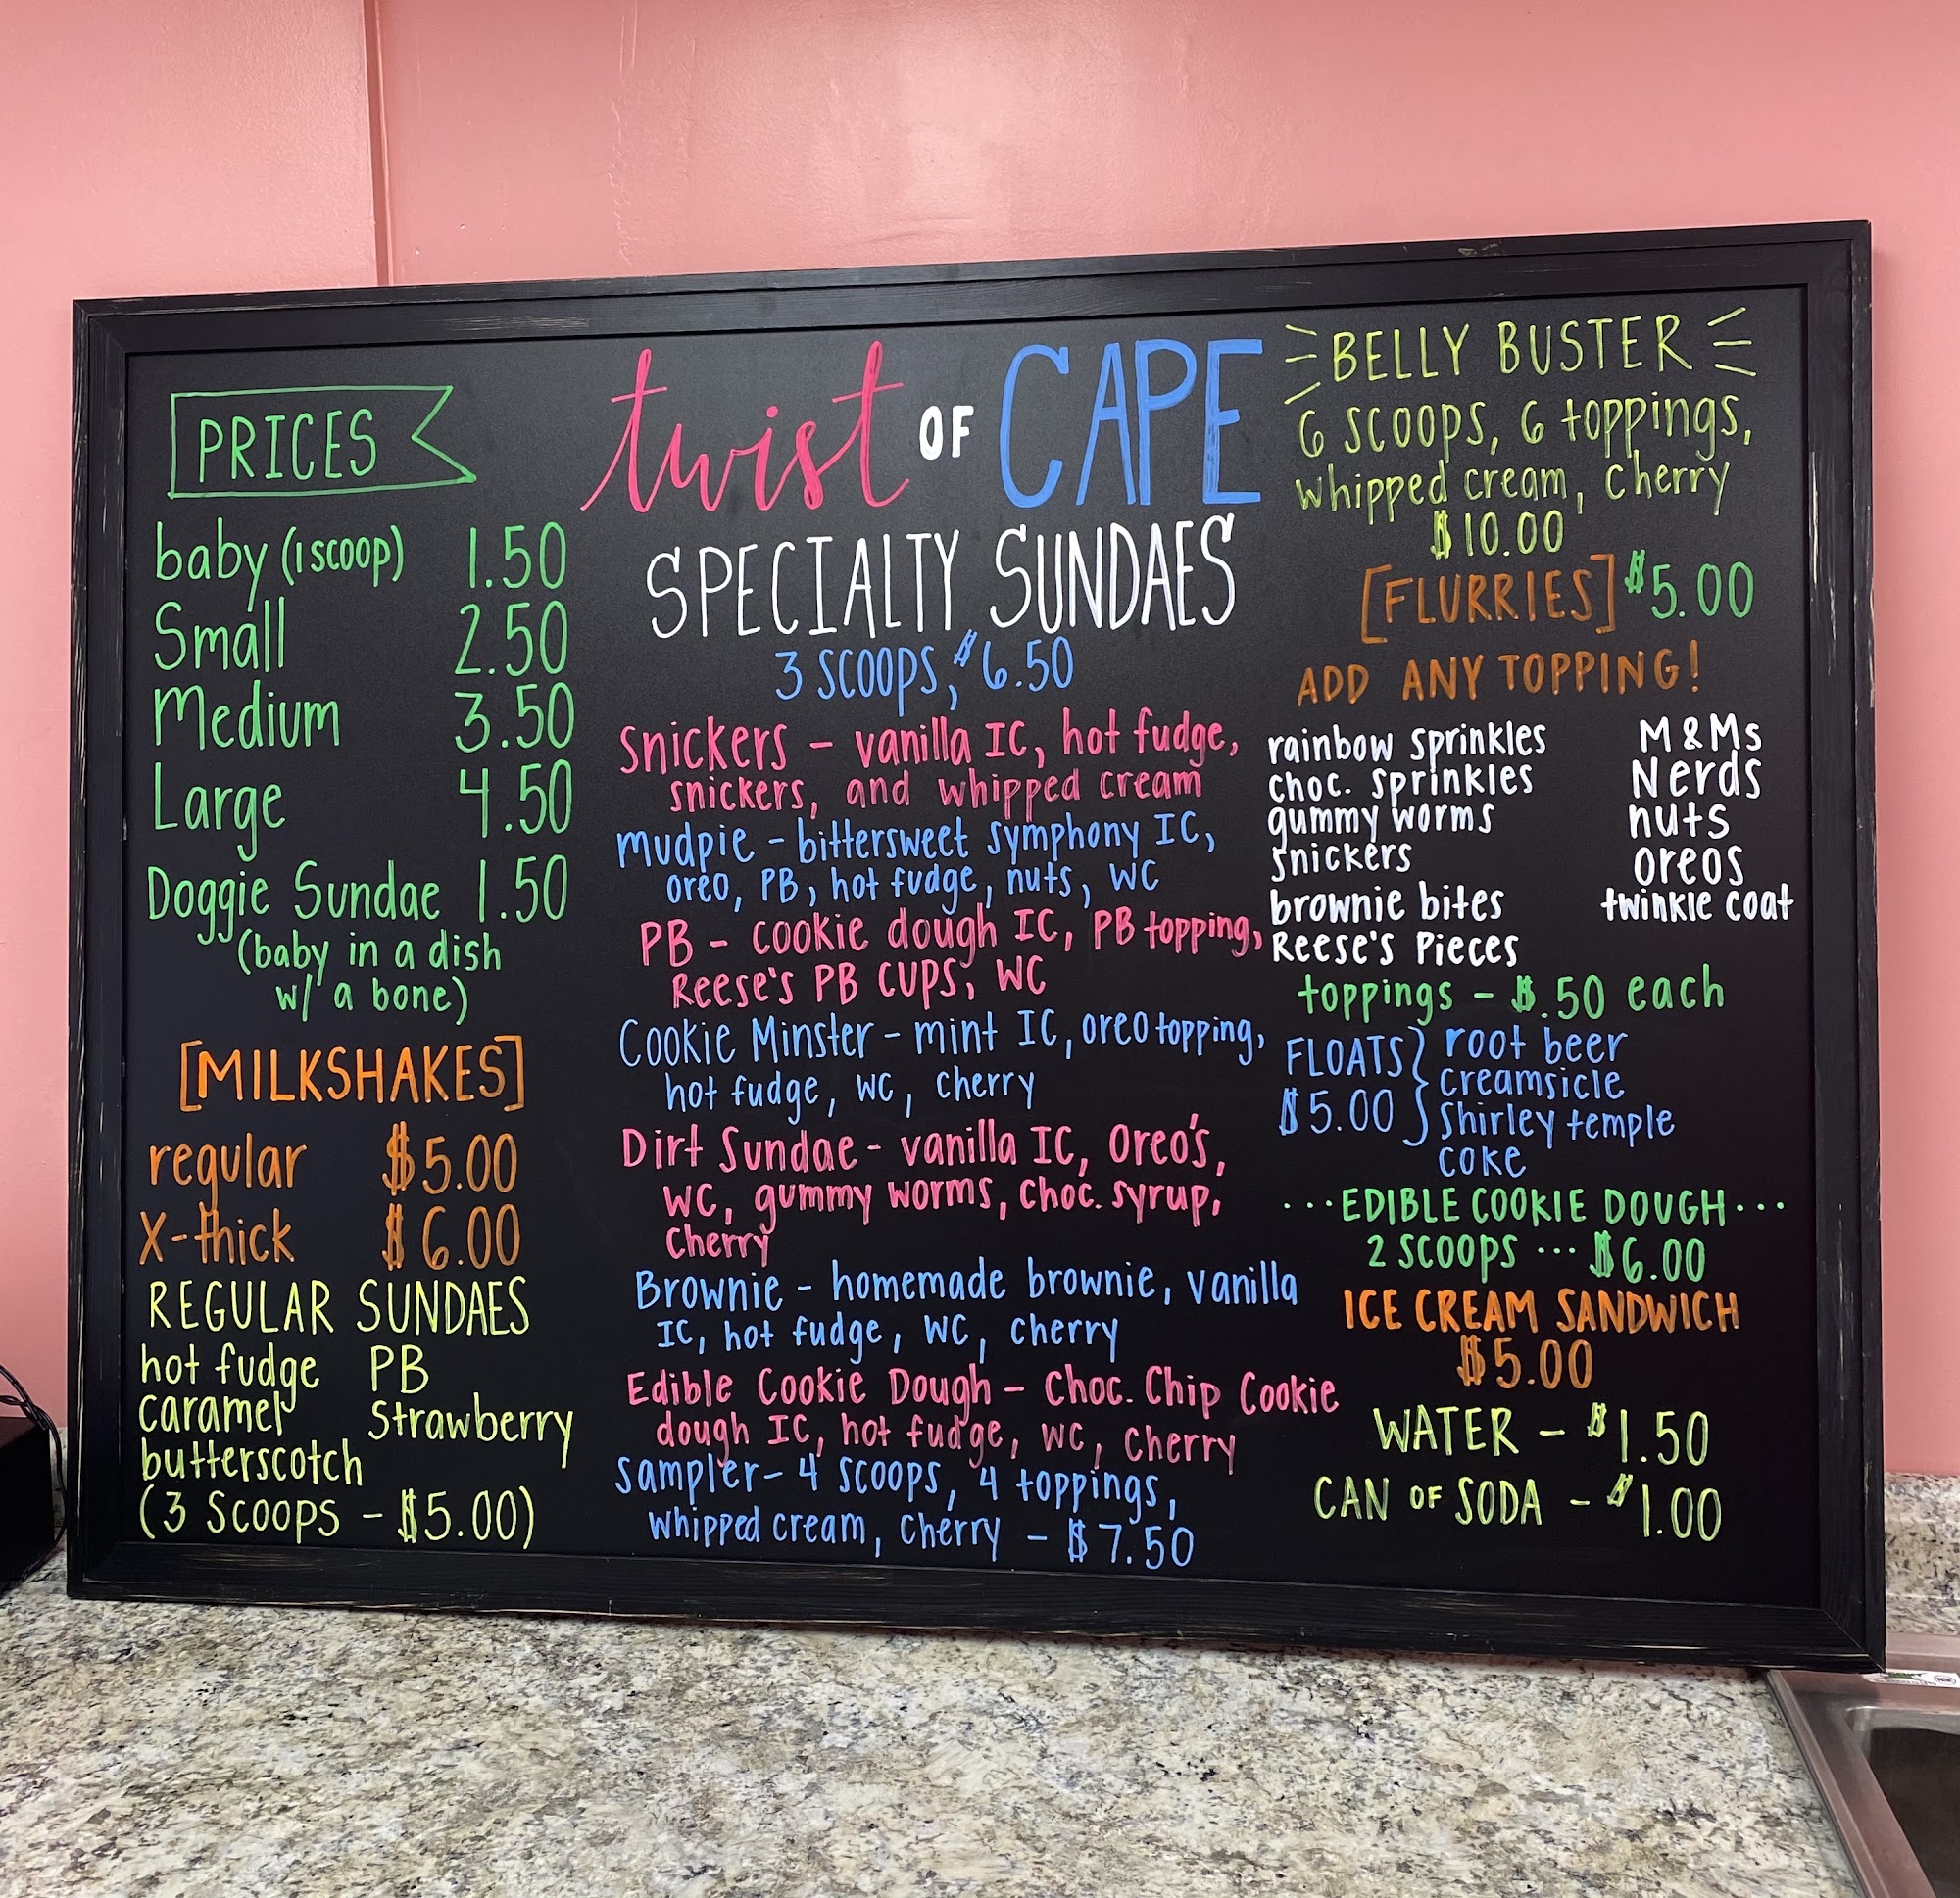 PRICES
baby (1 scoop) 1.50
Small 2.50
Medium 3.50
Large 4.50
Doggie Sundae 1.50
(baby in a dish
w/ a bone)
[MILKSHAKES]
regular $5.00
X-thick $6.00
REGULAR SUNDAES
hot fudge PB
caramel Strawberry
butterscotch
(3 Scoops - $5.00)
twist OF CAPE
SPECIALTY SUNDAES
3 SCOOPS, $6.50
Snickers - vanilla IC, hot fudge,
snickers, and whipped cream
mudpie - bittersweet symphony IC,
oreo, PB, hot fudge, nuts, WC
PB - cookie dough IC, PB topping,
Reese's PB CUPS, WC
Cookie Minster - mint IC, oreo topping,
hot fudge, WC, cherry
Dirt Sundae - vanilla IC, Oreo's,
WC, gummy worms, choc. syrup,
Cherry
Brownie - homemade brownie, vanilla
IC, hot fudge, WC, cherry
Edible Cookie Dough - Choc. Chip Cookie
dough IC, hot fudge, WC, Cherry
Sampler - 4 scoops, 4 toppings,
whipped cream, cherry - $7.50
BELLY BUSTER
6 scoops, 6 toppings,
whipped cream, cherry
$10.00
[FLURRIES] $5.00
ADD ANY TOPPING!
rainbow sprinkles M&Ms
choc. sprinkles Nerds
gummy worms nuts
snickers oreos
brownie bites twinkle coat
Reese's Pieces
toppings - $.50 each
FLOATS } root beer
$5.00 creamsicle
Shirley temple
coke
...EDIBLE COOKIE DOUGH...
2 SCOOPS ... $6.00
ICE CREAM SANDWICH
$5.00
WATER - $1.50
CAN OF SODA - $1.00